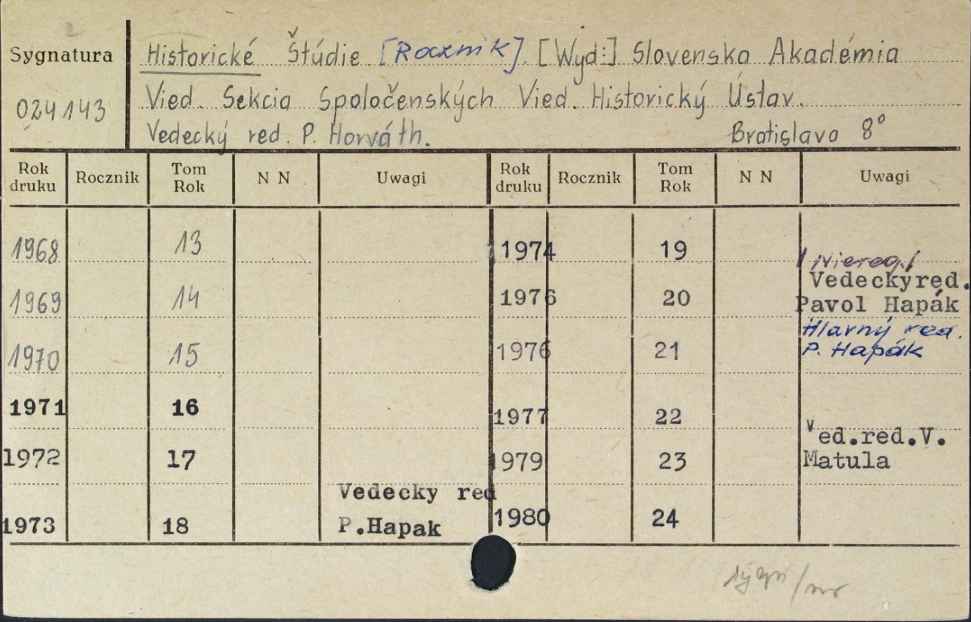 Sygnatura
024143
Historické Štúdie [Rocznik]. [Wyd:] Slovenska Akadémia
Vied. Sekcia Spoločenských Vied. Historický Ústav.
Vedecký red. P. Horváth. Bratislava 8°
Rok druku Rocznik Tom Rok N N Uwagi Rok druku Rocznik Tom Rok N N Uwagi
1968 13 1974 19 /Niereg./
1969 14 1976 20 Vedeckyred. Pavol Hapák
1970 15 1976 21 Hlavný red. P. Hapák
1971 16 1977 22
1972 17 1979 23 Ved.red.V. Matula
1973 18 Vedecky red P.Hapak 1980 24